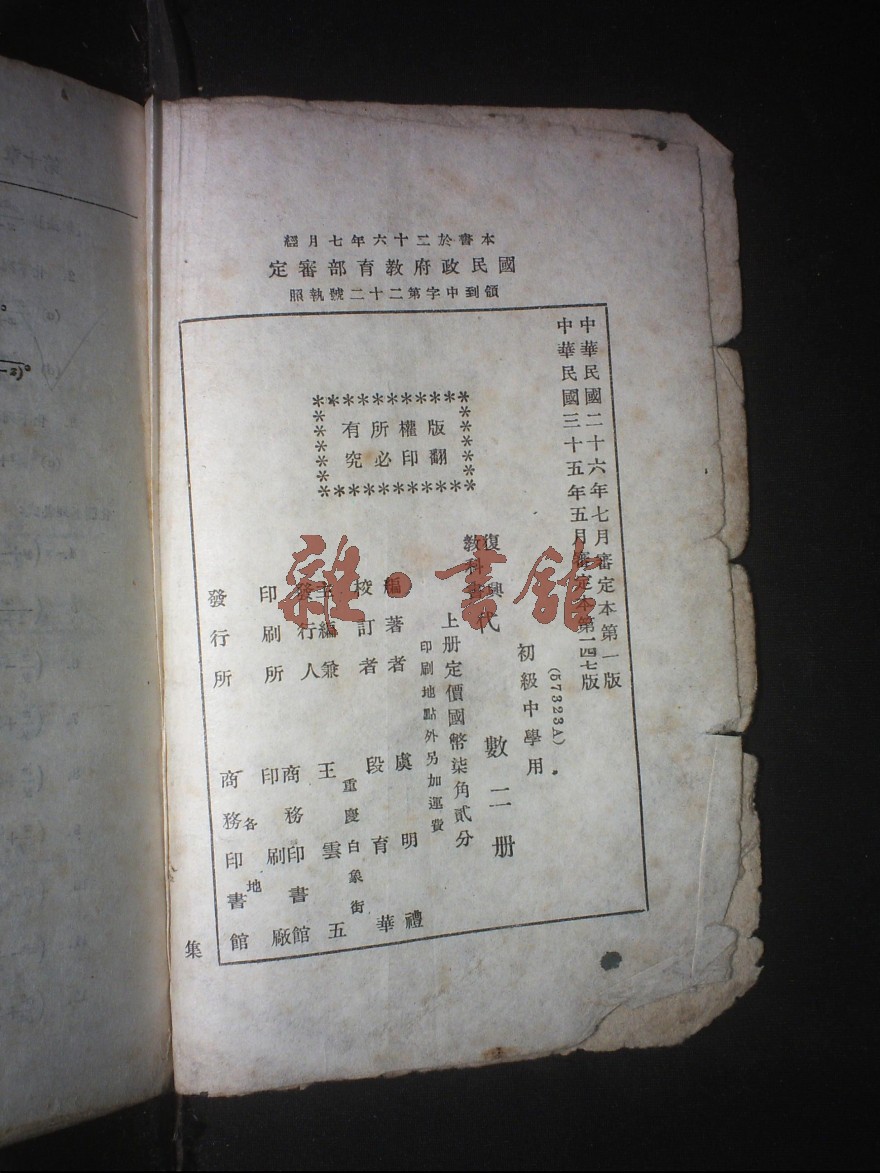 本書於二十六年七月經
國民政府教育部審定
領到中字第二十二號執照
中華民國二十六年七月審定本第一版
中華民國三十五年五月審定本第一四七版
(57323A)
版權所有
翻印必究
初級中學用
復興
教科書
代數二册
上册定價國幣柒角貳分
印刷地點外另加運費
編著者 虞明禮
校訂者 段育華
重慶白象街
主編兼
發行人 王雲五
印刷所 商務印書館
印刷廠
各地
發行所 商務印書館
集
雜·書館